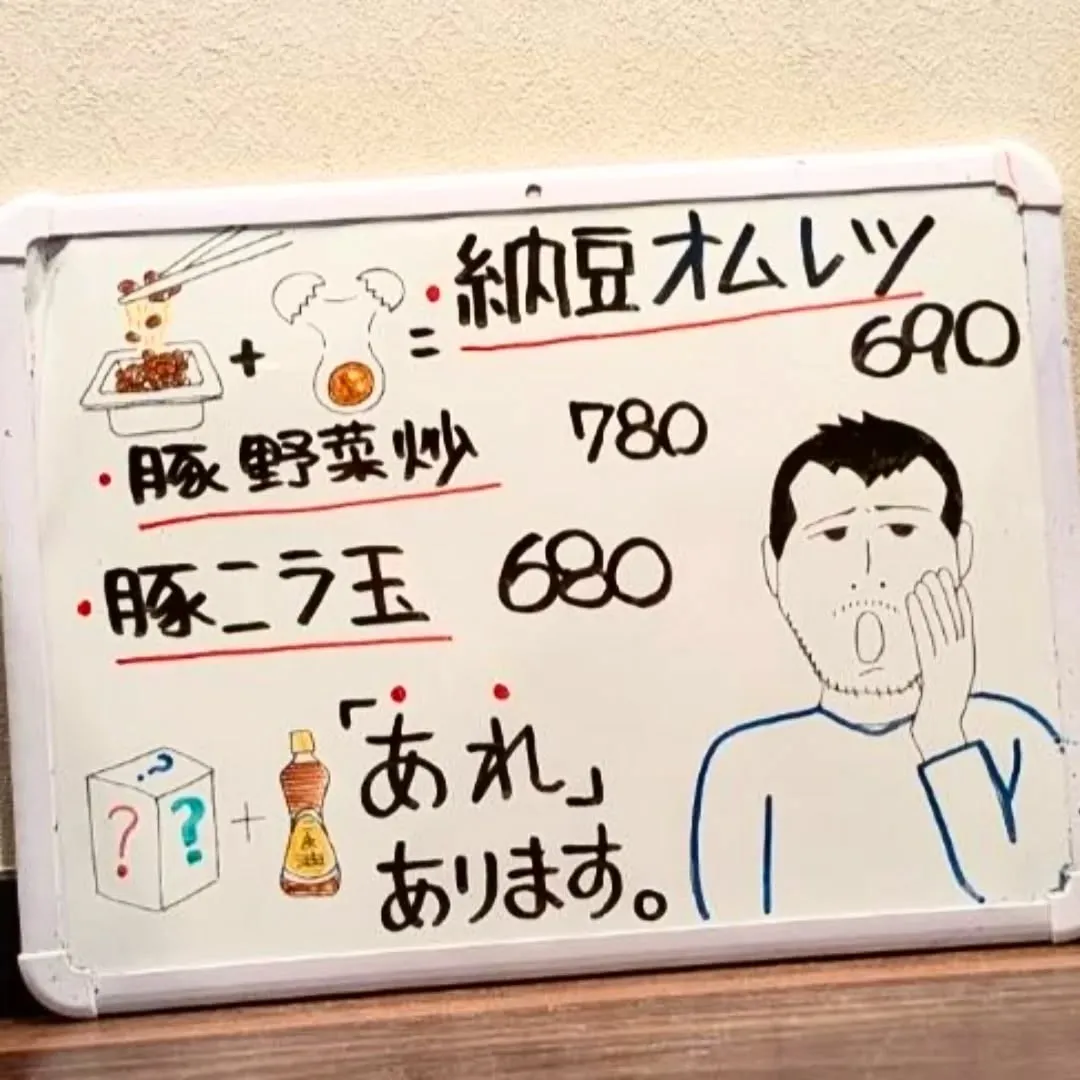 + = ・納豆オムレツ
690
・豚野菜炒 780
・豚ニラ玉 680
? ? ? + 「あれ」
あります。